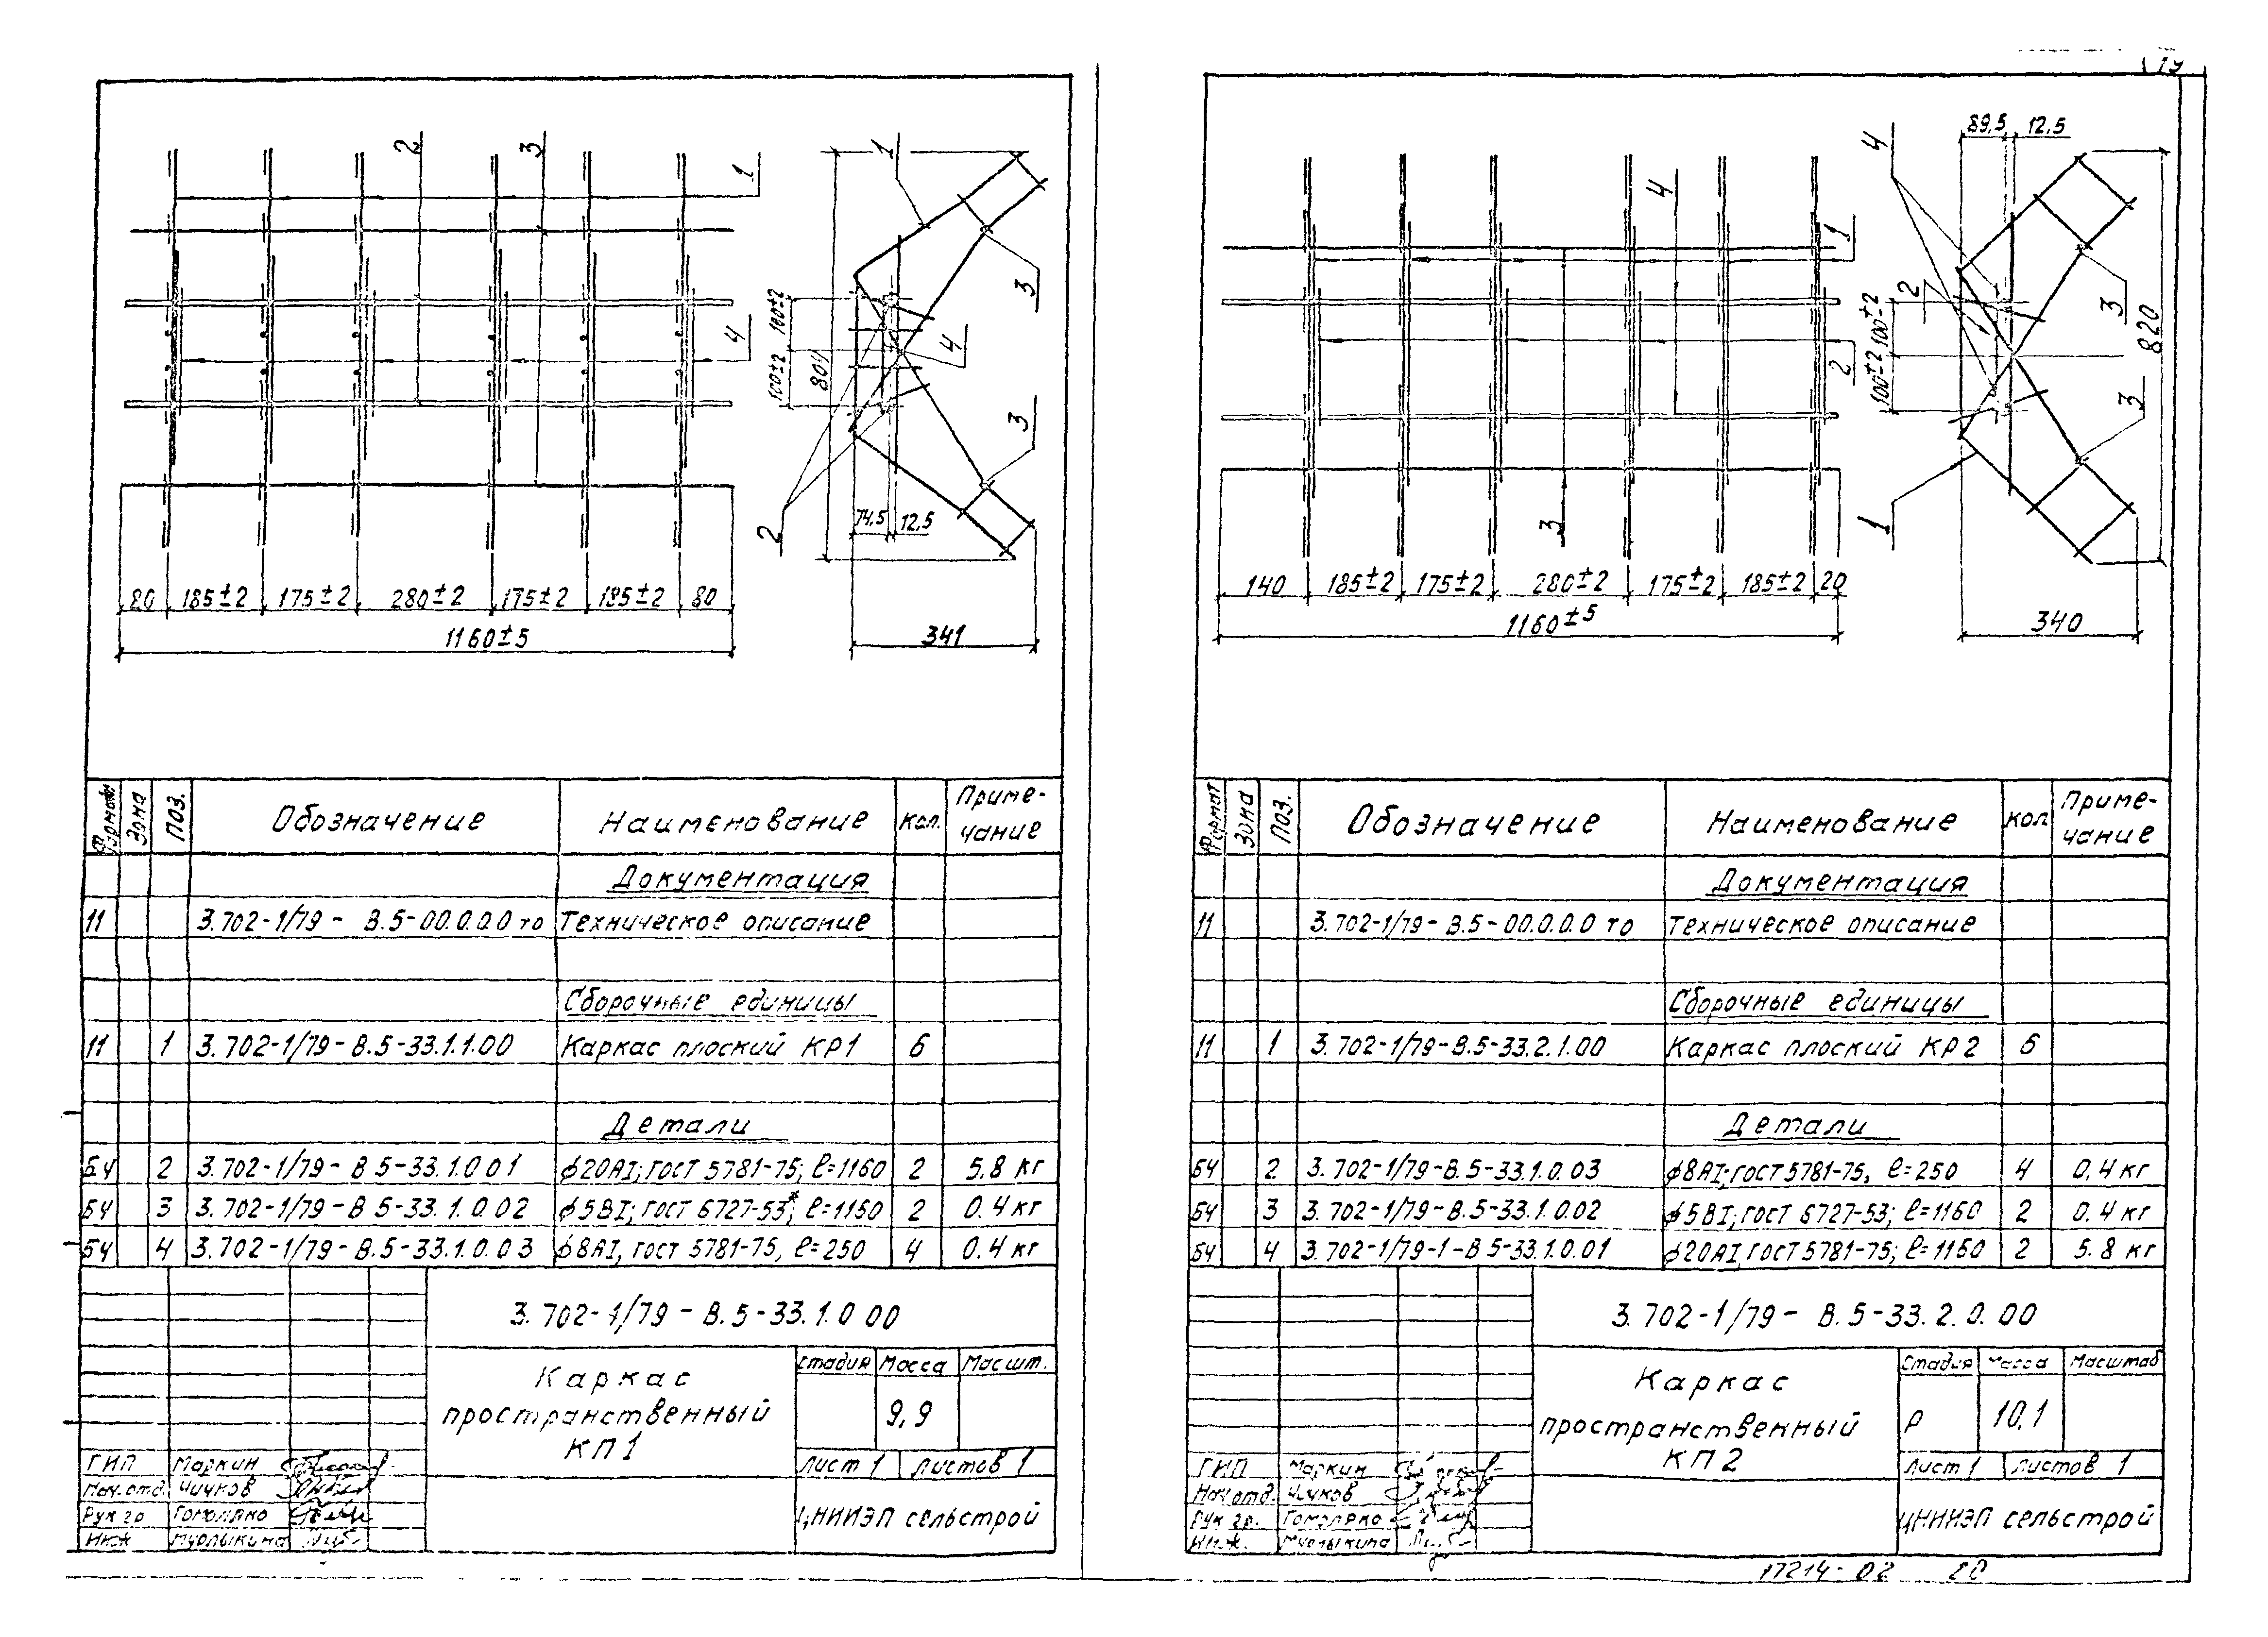 19
2 3 1
4
100±2 100±2
804
1
3
4
3
2
74,5 12,5
80 185±2 175±2 280±2 175±2 185±2 80
1160±5
341
Формат Зона Поз. Обозначение Наименование Кол. Приме-
чание
Документация
11 3.702-1/79- В.5-00.0.0.0 то Техническое описание
Сборочные единицы
11 1 3.702-1/79-В.5-33.1.1.00 Каркас плоский КР1 6
Детали
БЧ 2 3.702-1/79-В 5-33.1.0 01 ϕ20АI; ГОСТ 5781-75; ℓ=1160 2 5,8 кг
БЧ 3 3.702-1/79-В 5-33.1.0.02 ϕ5ВI; ГОСТ 6727-53*; ℓ=1160 2 0.4 кг
БЧ 4 3.702-1/79-В.5-33.1.0.03 ϕ8АI, ГОСТ 5781-75, ℓ=250 4 0.4 кг
3.702-1/79-В.5-33.1.0 00
Каркас
пространственный
КП1
стадия Масса Масшт.
9,9
Лист 1 Листов 1
ЦНИИЭП сельстрой
ГИП Маркин
Нач.отд. Чичков
Рук гр Гомоляко
Инж Мурлыкина
4
1
2
3
89,5 12,5
4
2
3
3
1
100±2 100±2
820
140 185±2 175±2 280±2 175±2 185±2 20
1160±5
340
Формат Зона Поз. Обозначение Наименование Кол Приме-
чание
Документация
11 3.702-1/79-В.5-00.0.0.0 то Техническое описание
Сборочные единицы
11 1 3.702-1/79-В.5-33.2.1.00 Каркас плоский КР2 6
Детали
БЧ 2 3.702-1/79-В.5-33.1.0.03 ϕ8АI; ГОСТ 5781-75, ℓ=250 4 0,4 кг
БЧ 3 3.702-1/79-В.5-33.1.0.02 ϕ5ВI; ГОСТ 6727-53; ℓ=1160 2 0.4 кг
БЧ 4 3.702-1/79-1-В 5-33.1.0.01 ϕ20АI, ГОСТ 5781-75; ℓ=1160 2 5.8 кг
3.702-1/79- В.5-33.2.0.00
Каркас
пространственный
КП2
Стадия Масса Масштаб
Р 10,1
Лист 1 Листов 1
ЦНИИЭП сельстрой
ГИП Маркин
Нач отд. Чичков
Рук гр. Гомоляко
Инж. Мурлыкина
17214-02 20